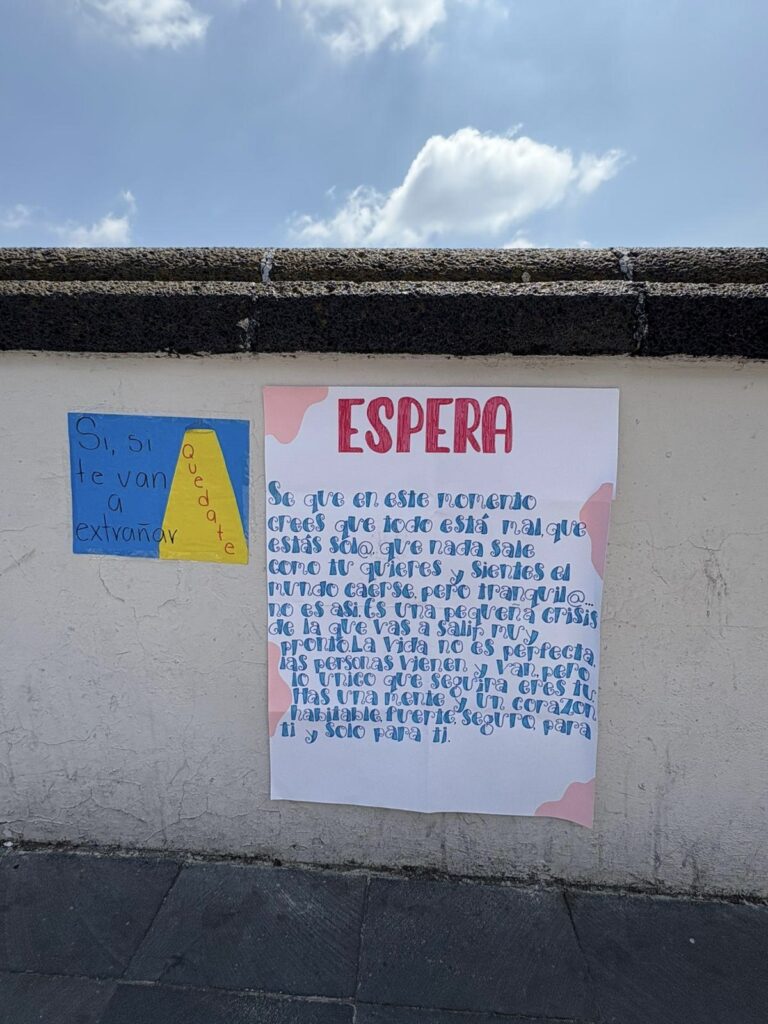 Si, si
te van
a
extrañar
Quedate
ESPERA
Se que en este momento
crees que todo está mal, que
estás sol@, que nada sale
como tu quieres y sientes el
mundo caerse, pero tranquil@...
no es asi. Es una pequeña crisis
de la que vas a salir muy
pronto. La vida no es perfecta,
las personas vienen y van, pero
lo unico que seguira eres tu
Has una mente y un corazon
habitable, fuerte, seguro, para
ti y solo para ti.